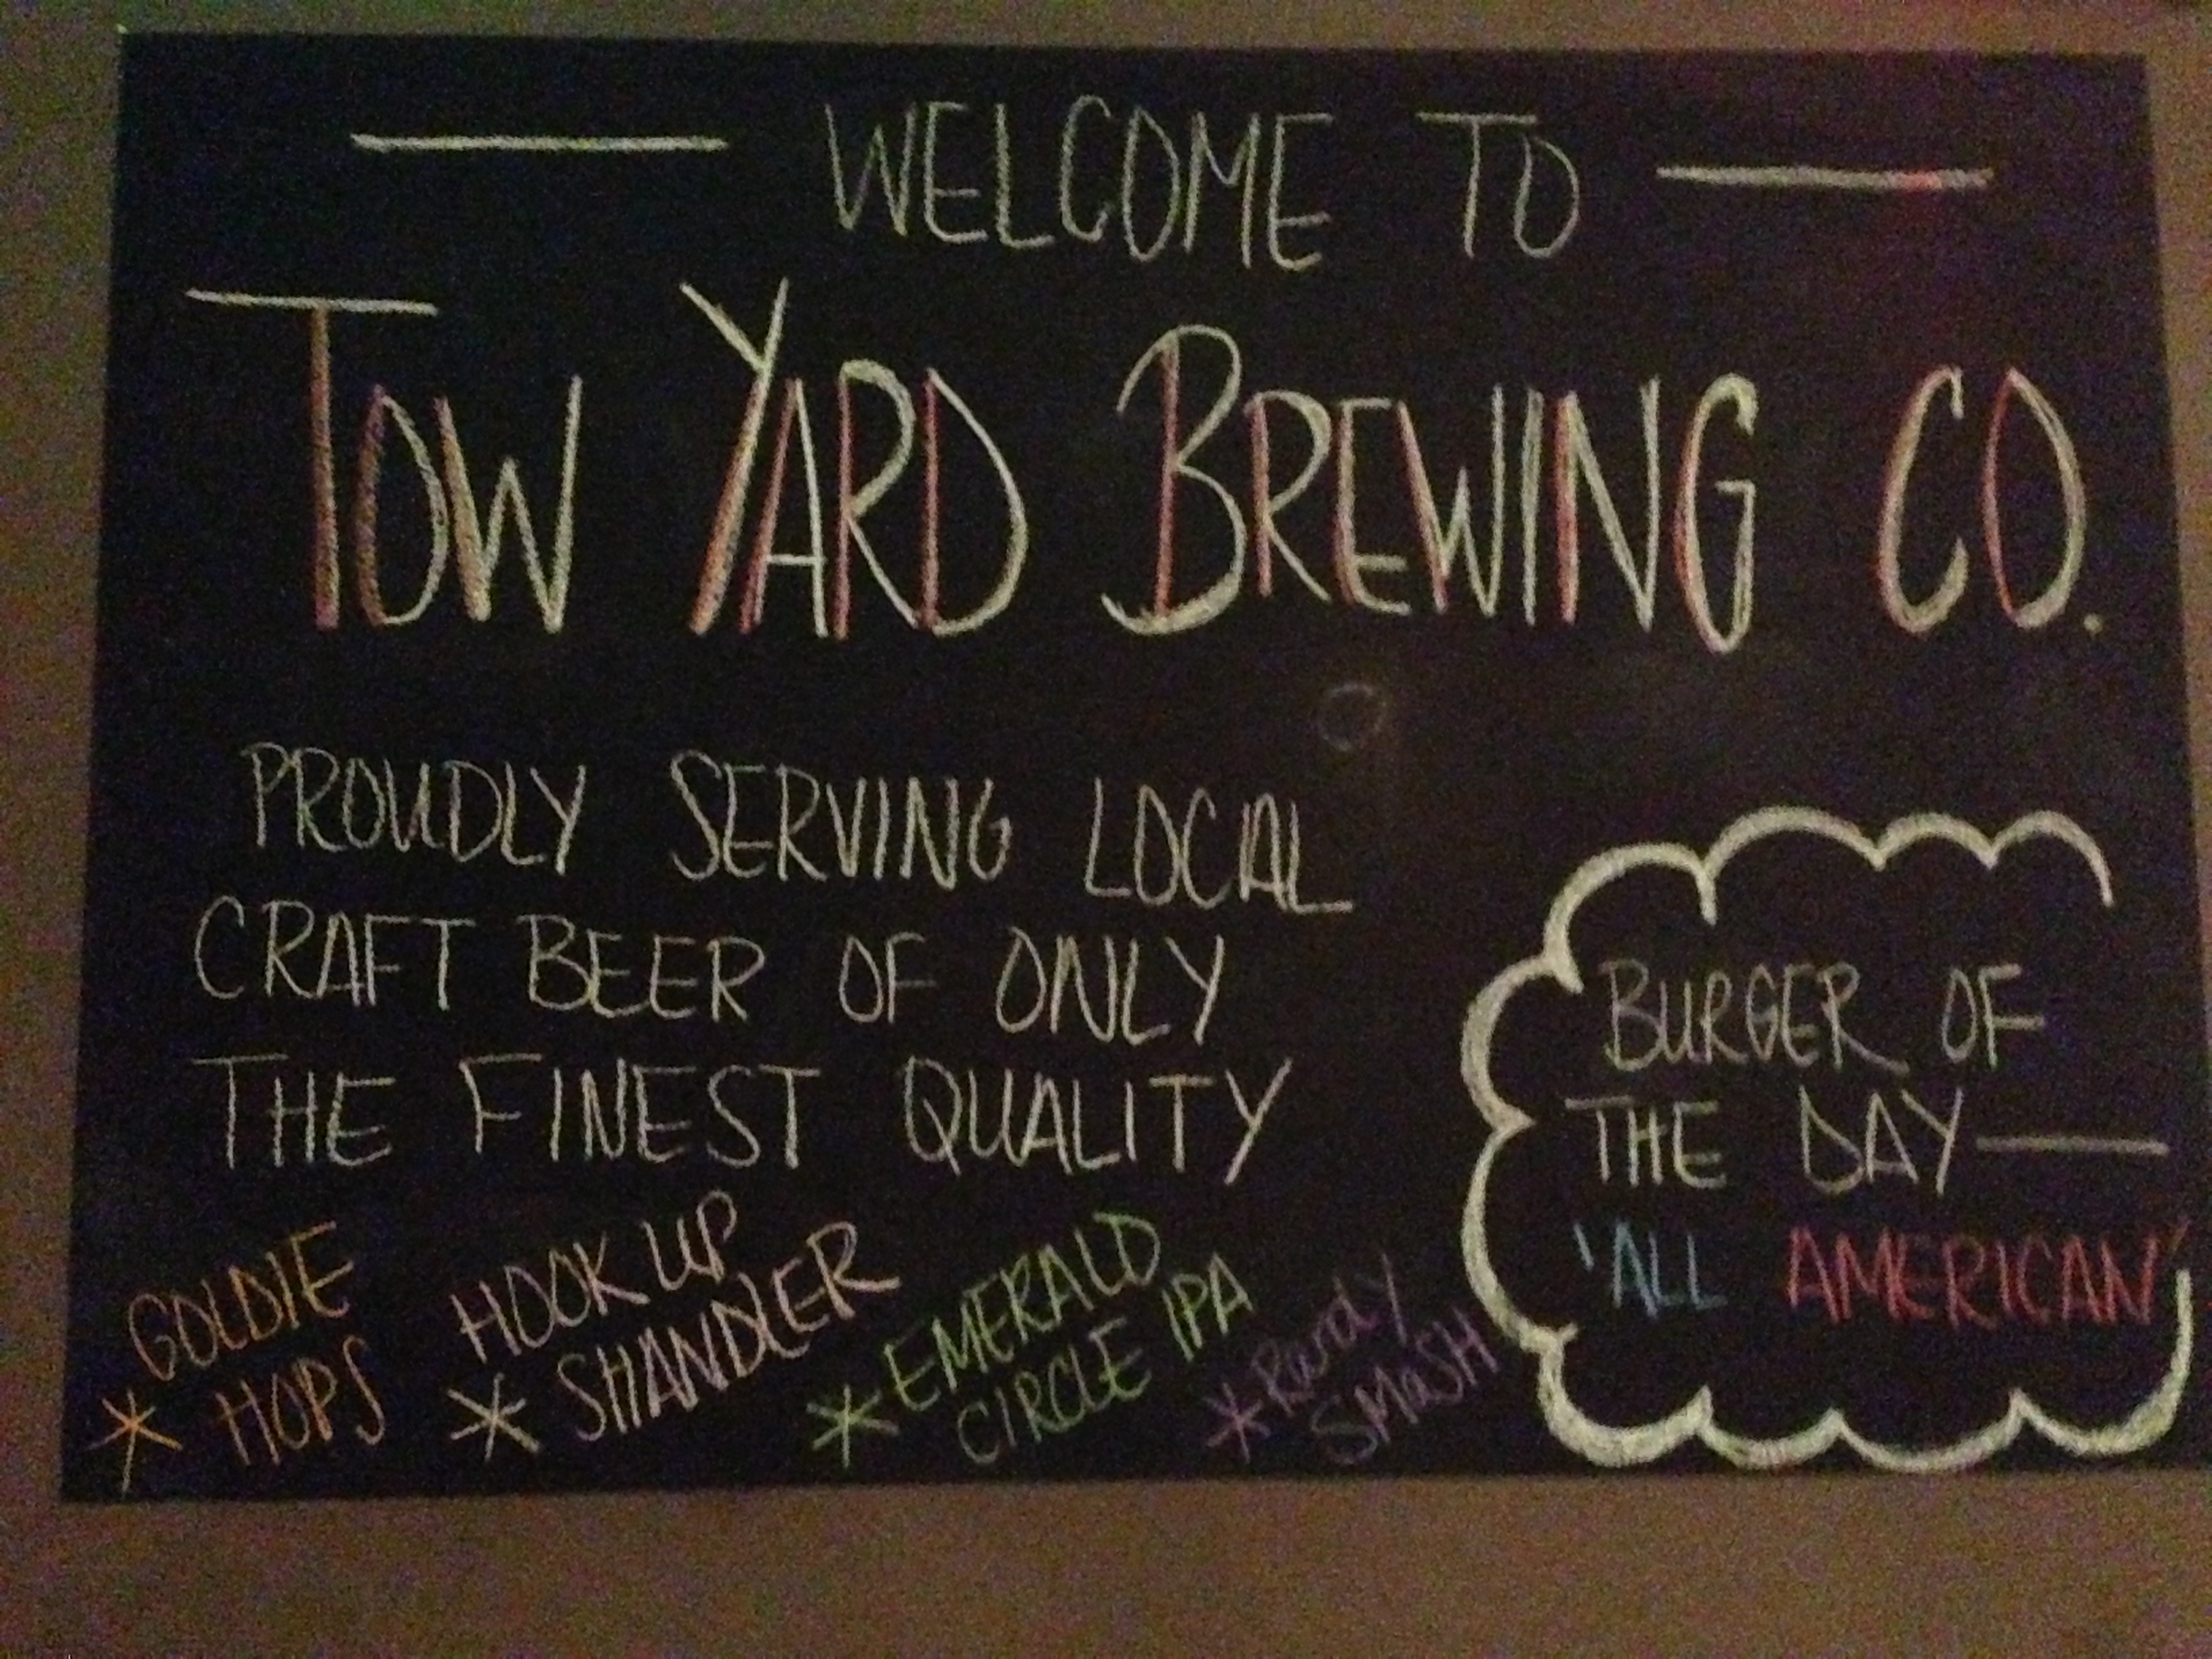 WELCOME TO
TOW YARD BREWING CO.
PROUDLY SERVING LOCAL
CRAFT BEER OF ONLY
THE FINEST QUALITY
* GOLDIE
HOPS
* HOOK UP
SHANDLER
* EMERALD
CIRCLE IPA
* Rowdy
SMaSH
BURGER OF
THE DAY —
'ALL AMERICAN'